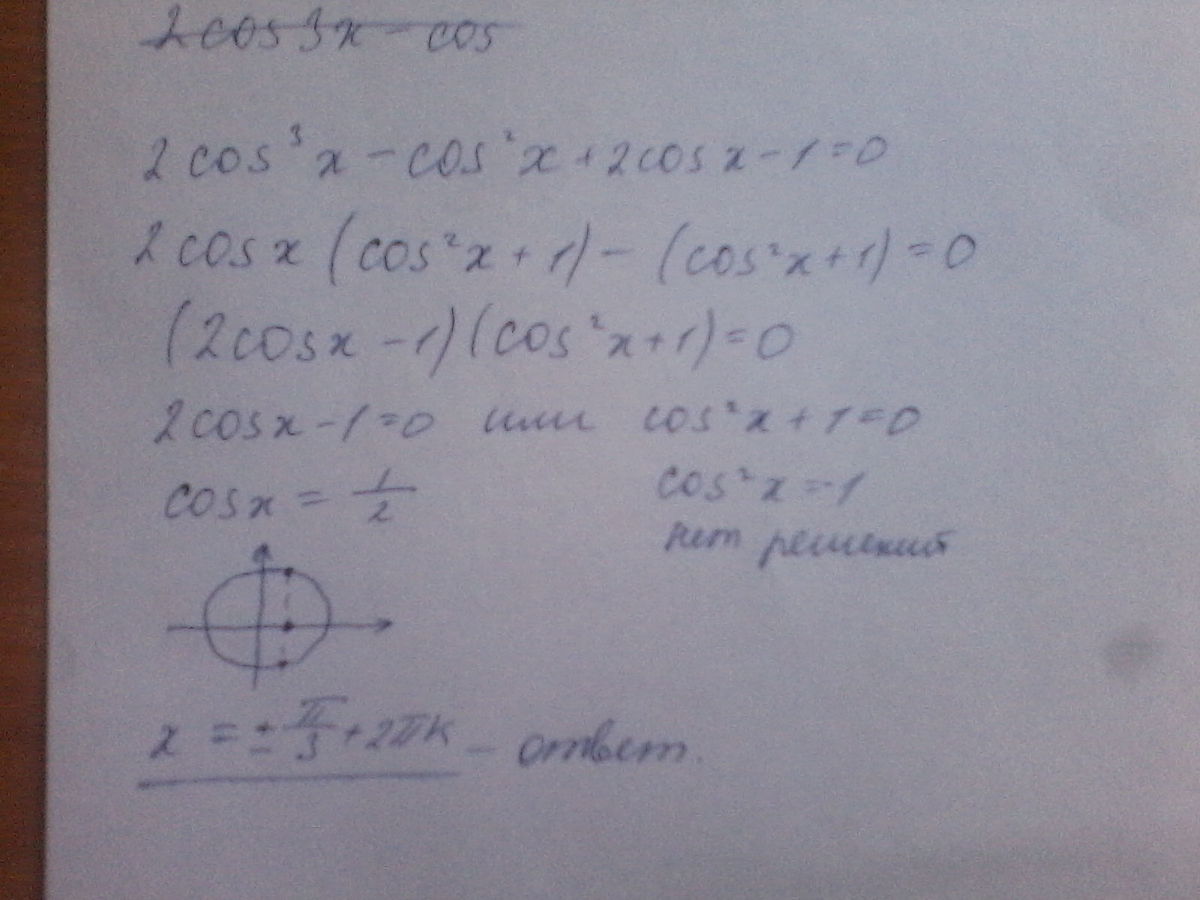 2cos3x - cos
2cos³x - cos²x + 2cosx - 1 = 0
2cosx (cos²x + 1) - (cos²x + 1) = 0
(2cosx - 1)(cos²x + 1) = 0
2cosx - 1 = 0 или cos²x + 1 = 0
cosx = 1/2 cos²x = -1
нет решений
x = ± π/3 + 2πк - ответ.